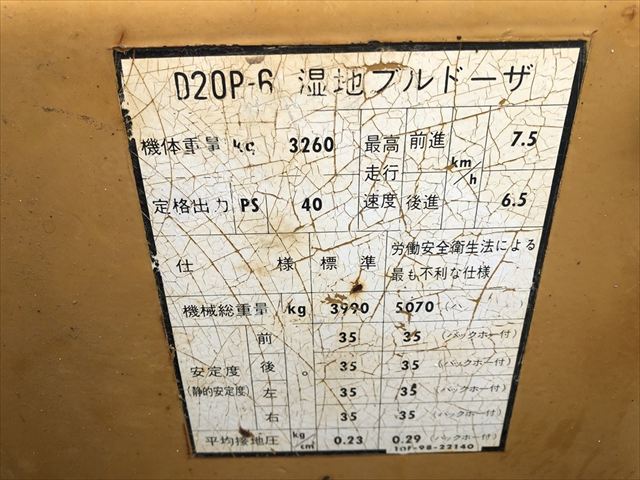 D20P-6 湿地ブルドーザ
機体重量 kg 3260 最高走行速度 前進 km/h 7.5
定格出力 PS 40 後進 6.5
仕様 標準 労働安全衛生法による最も不利な仕様
機械総重量 kg 3990 5070
安定度(静的安定度) 前 ° 35 35 (バックホー付)
後 35 35 (バックホー付)
左 35 35 (バックホー付)
右 35 35 (バックホー付)
平均接地圧 kg/cm 0.23 0.29 (バックホー付)
10F-98-22140